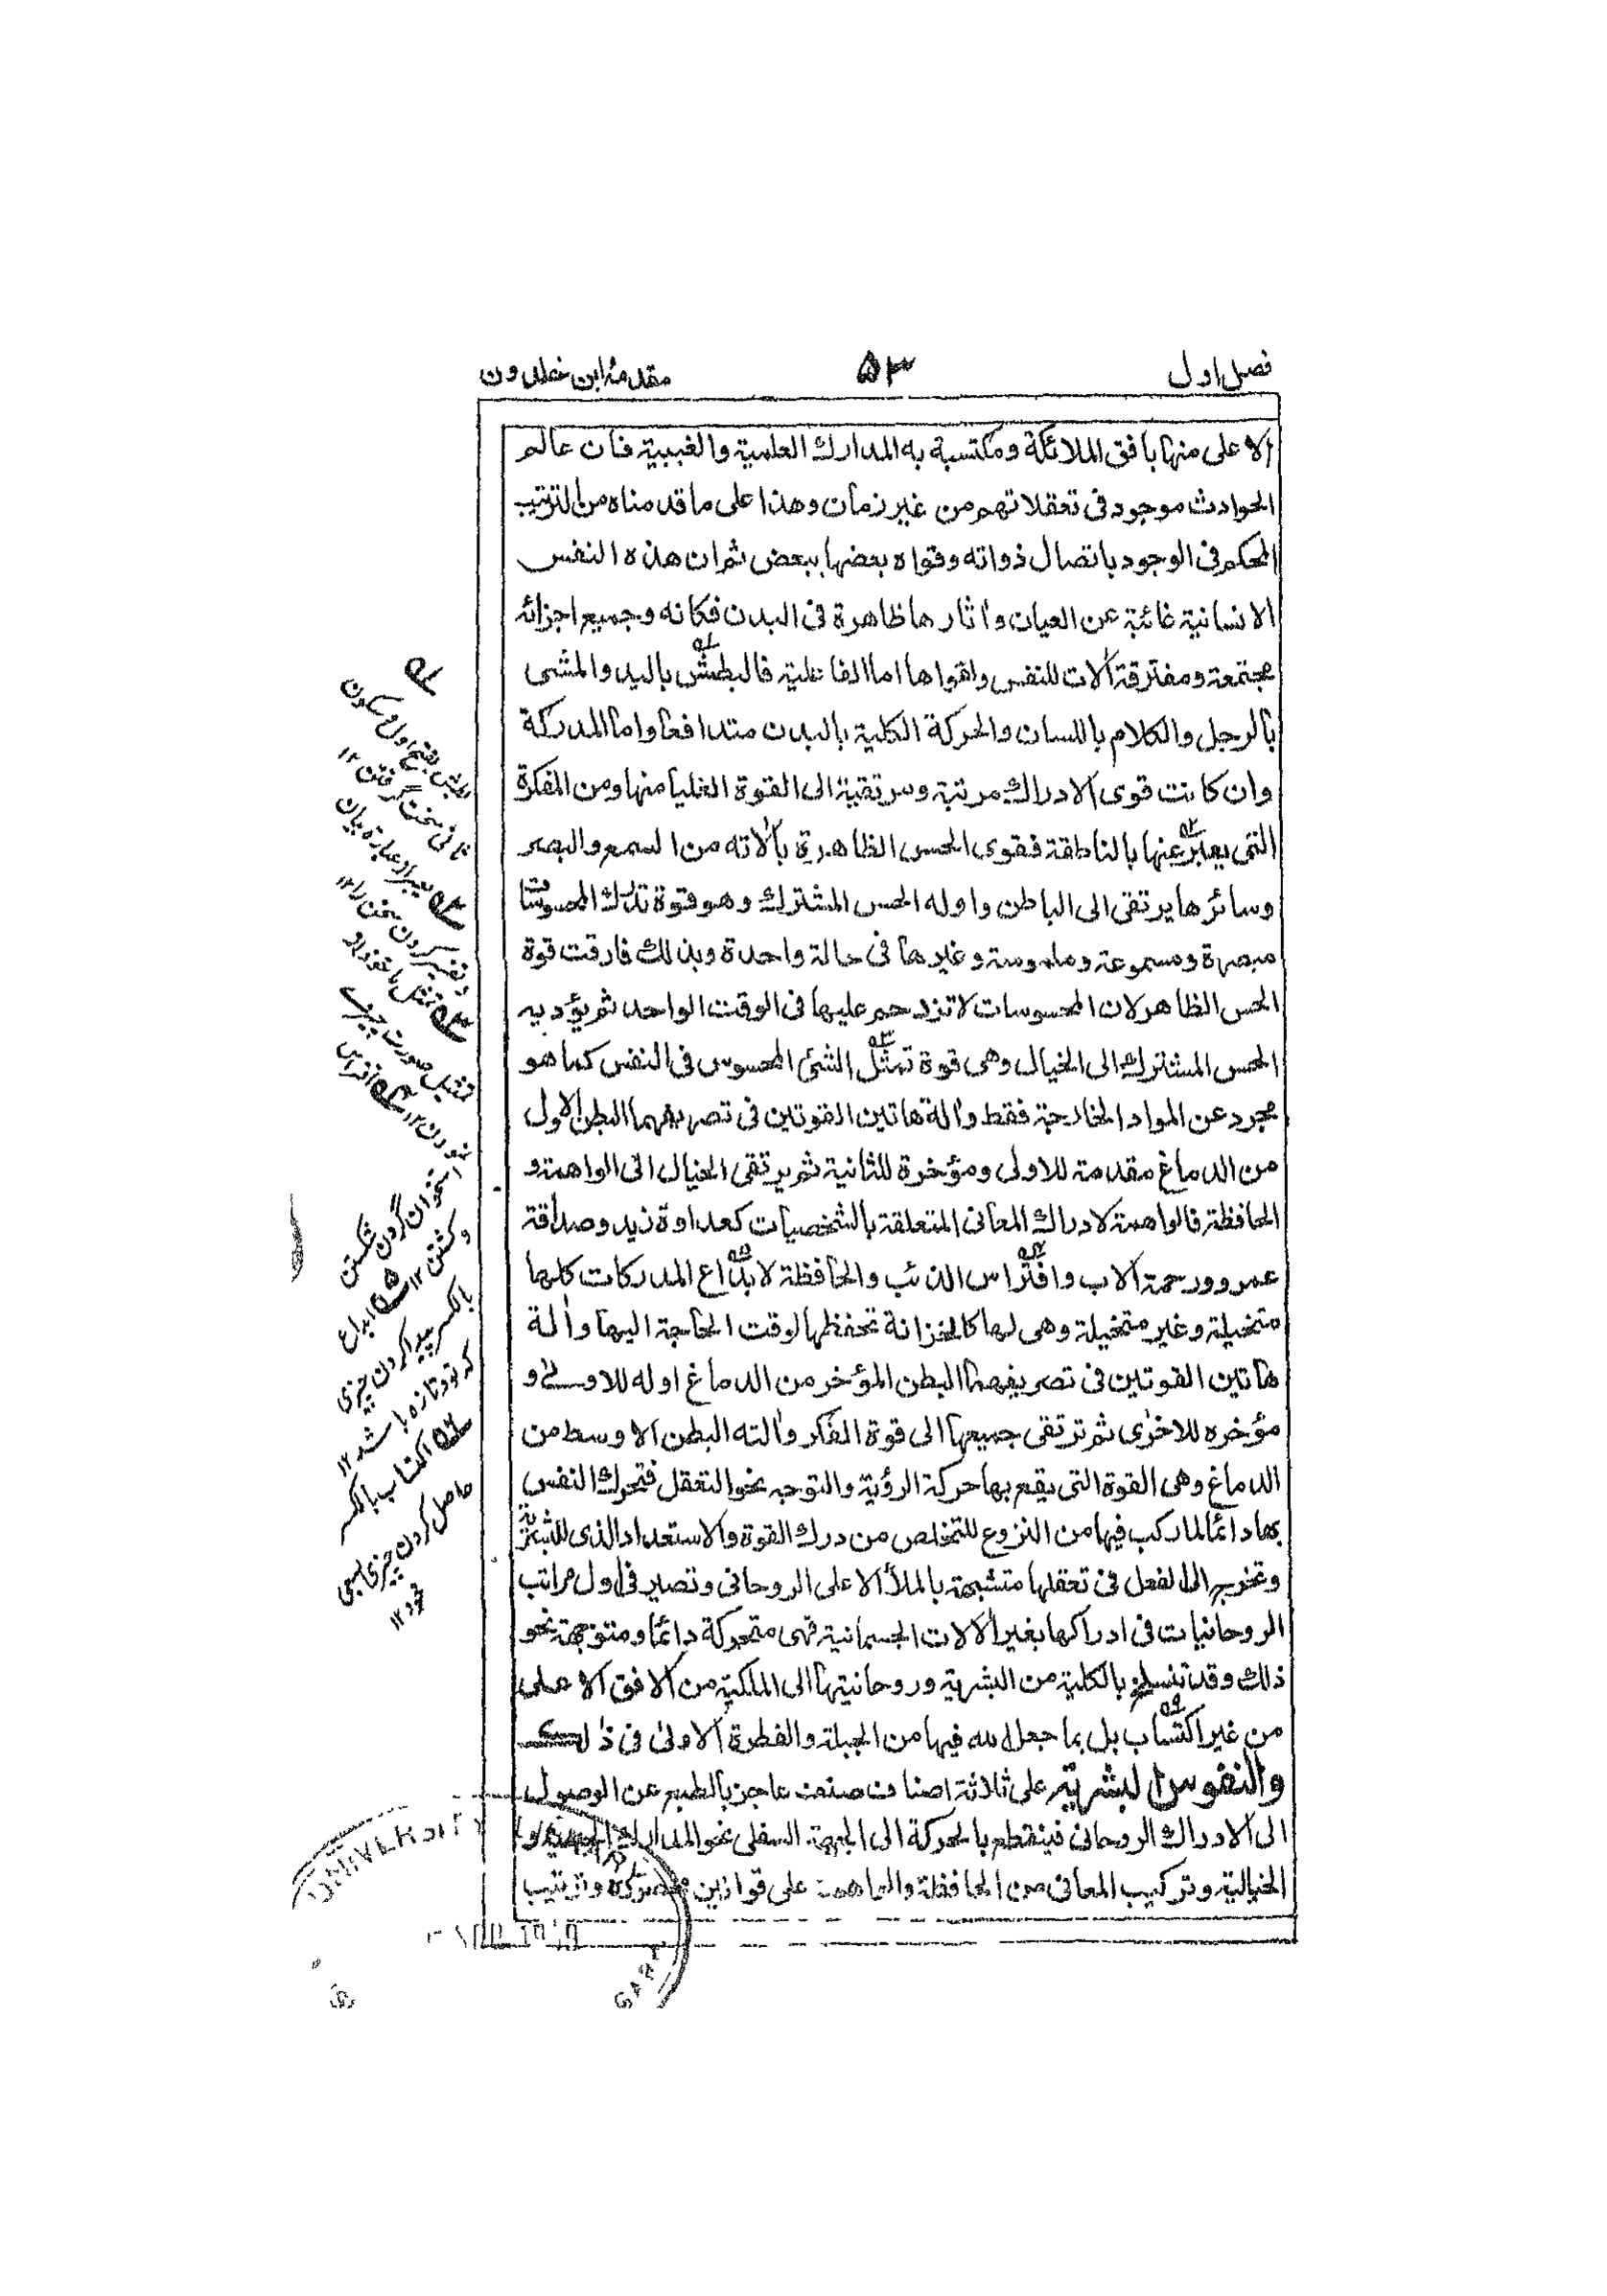 فصل اول ۵۳ مقدمۂ ابن خلدون
الاعلى منها بافق الملائكة ومكتسبة به المدارك العلمية والغيبية فان عالم
الحوادث موجود فى تعقلاتهم من غير زمان وهذا على ما قدمناه من الترتيب
المحكم فى الوجود باتصال ذواته وقواه بعضها ببعض ثم ان هذه النفس
الانسانية غائبة عن العيان واٰثارها ظاهرة فى البدن فكانه وجميع اجزائه
مجتمعة ومفترقة اٰلات للنفس ولقواها اما الفاعلية فالبطش باليد والمشى
بالرجل والكلام باللسان والحركة الكلية بالبدن متدافعا واما المدركة
وان كانت قوى الادراك مرتبة ومرتقية الى القوة العليا منها ومن المفكرة
التى يعبر عنها بالناطقة فقوى الحس الظاهرة بٱلاته من السمع والبصر
وسائرها يرتقى الى الباطن واوله الحس المشترك وهو قوة تدرك المحسوسات
مبصرة ومسموعة وملموسة وغيرها فى حالة واحدة وبذلك فارقت قوة
الحس الظاهر لان المحسوسات لا تزدحم عليها فى الوقت الواحد ثم يؤديه
الحس المشترك الى الخيال وهى قوة تمثل الشئ المحسوس فى النفس كما هو
مجرد عن المواد الخارجة فقط واٰلة هاتين القوتين فى تصريفهما البطن الاول
من الدماغ مقدمة للاولى ومؤخرة للثانية ثم يرتقى الخيال الى الواهمة و
الحافظة فالواهمة لادراك المعانى المتعلقة بالشخصيات كعداوة زيد وصداقة
عمرو ورحمة الاب وافتراس الذئب والحافظة لابداع المدركات كلها
متخيلة وغير متخيلة وهى لها كالخزانة تحفظها لوقت الحاجة اليها واٰلة
هاتين القوتين فى تصريفهما البطن المؤخر من الدماغ اوله للاولى و
مؤخره للاخرى ثم ترتقى جميعها الى قوة الفكر واٰلته البطن الاوسط من
الدماغ وهى القوة التى يقع بها حركة الرؤية والتوجه نحو التعقل فتحرك النفس
بها دائما لما ركب فيها من النزوع للتخلص من درك القوة والاستعداد الذى للبشرية
وتخرج الى الفعل فى تعقلها متشبهة بالملأ الاعلى الروحانى وتصير فى اول مراتب
الروحانيات فى ادراكها بغير الالات الجسمانية فهى متحركة دائما ومتوجهة نحو
ذلك وقد تنسلخ بالكلية من البشرية وروحانيتها الى الملكية من الافق الاعلى
من غير اكتساب بل بما جعل الله فيها من الجبلة والفطرة الاولى فى ذلك
والنفوس البشرية على ثلاثة اصناف صنف عاجز بالطبع عن الوصول
الى الادراك الروحانى فينقطع بالحركة الى الجهة السفلى نحو المدارك الحسية و
الخيالية وتركيب المعانى من الحافظة والواهمة على قوانين وترتيب
بطش بفتح اول وسكون
ثانى سخت گرفتن ۱۲
تعبير از عبارة بيان
وتفسير كردن سخن را ۱۲
صورت چيزے
افتراس
استخوان گردن شكستن
وكشتن ۱۲ ۵ ابداع
بالكسر پيدا كردن چيزى
كه نو وتازه باشد ۱۲
اكتساب بالكسر
حاصل كردن چيزى بسعى
خود ۱۲
UNIVERSITY